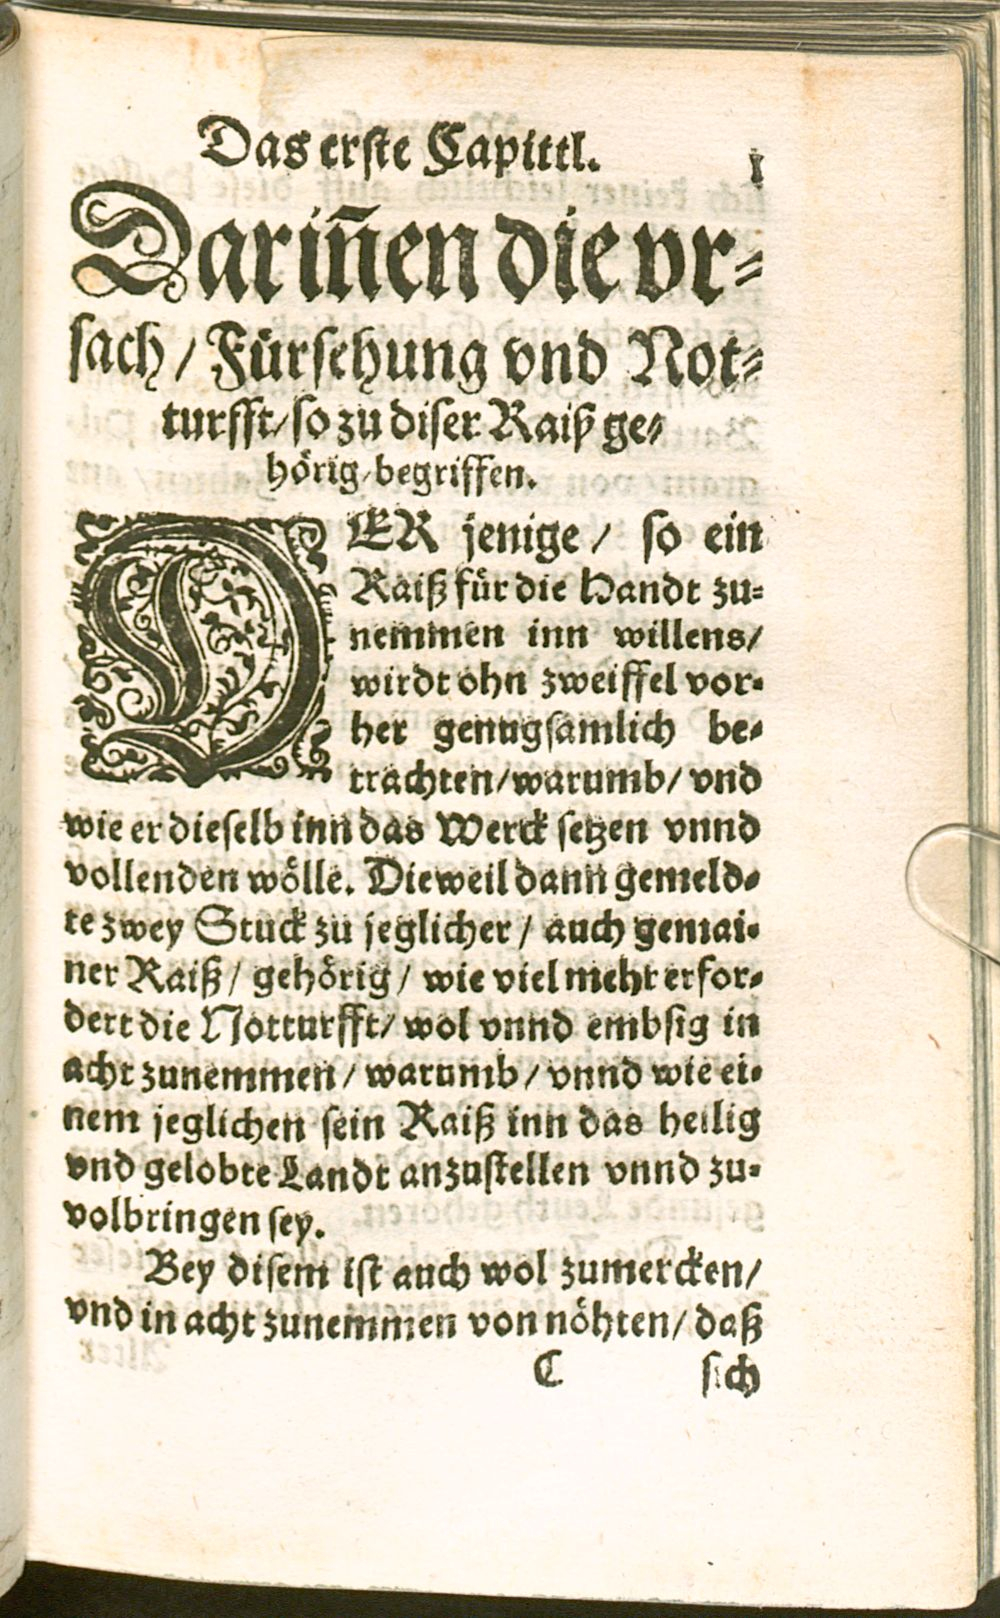 Das erste Capittl.
1
Dariñen die vr⸗
sach / Fürsehung vnd Not⸗
turfft / so zu diser Raiß ge⸗
hörig / begriffen.
DER jenige / so ein
Raiß für die Handt zu⸗
nemmen inn willens /
wirdt ohn zweiffel vor⸗
her genugsamlich be⸗
trachten / warumb / vnd
wie er dieselb inn das Werck setzen vnnd
vollenden wölle. Dieweil dann gemeld⸗
te zwey Stuck zu jeglicher / auch gemai⸗
ner Raiß / gehörig / wie viel mehr erfor⸗
dert die Notturfft / wol vnnd embsig in
acht zunemmen / warumb / vnnd wie ei⸗
nem jeglichen sein Raiß inn das heilig
vnd gelobte Landt anzustellen vnnd zu⸗
volbringen sey.
Bey disem ist auch wol zumercken /
vnd in acht zunemmen von nöhten / daß
C sich